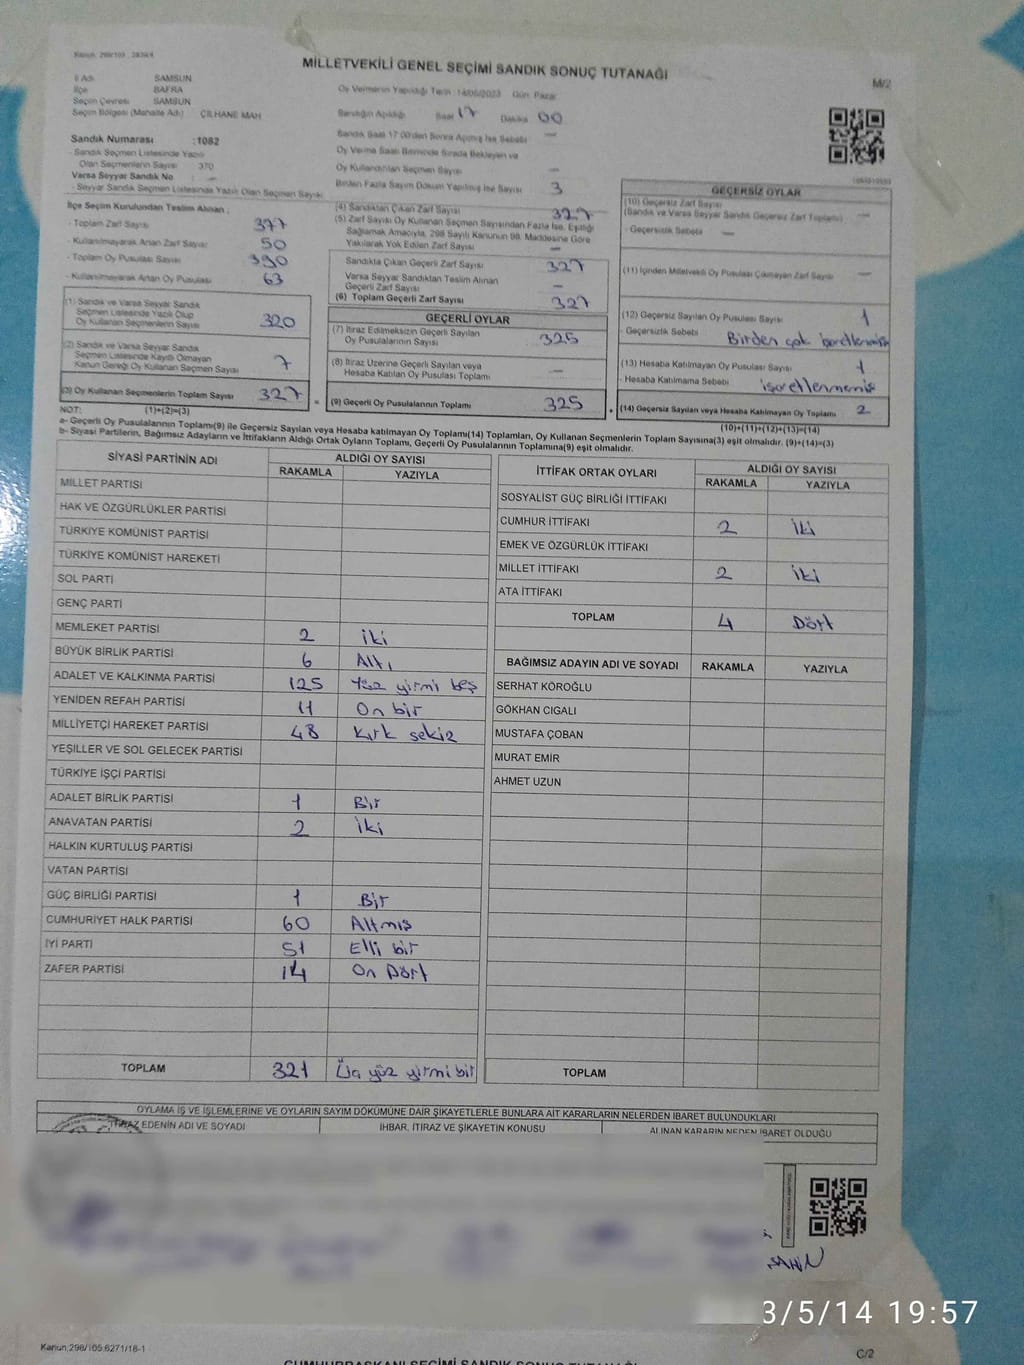 MİLLETVEKİLİ GENEL SEÇİMİ SANDIK SONUÇ TUTANAĞI
M/2
İl Adı SAMSUN
İlçe BAFRA
Seçim Çevresi SAMSUN
Seçim Bölgesi (Mahalle Adı) CİLHANE MAH
Oy Vermenin Yapıldığı Tarih :14/05/2023 Gün: Pazar
Sandığın Açıldığı Saat 17 Dakika 00
Sandık Saat 17:00'den Sonra Açılmış İse Sebebi —
Oy Verme Saati Bitiminde Sırada Bekleyen ve
Oy Kullandırılan Seçmen Sayısı —
Birden Fazla Sayım Döküm Yapılmış İse Sayısı 3
Sandık Numarası :1082
- Sandık Seçmen Listesinde Yazılı
Olan Seçmenlerin Sayısı 370
Varsa Seyyar Sandık No —
- Seyyar Sandık Seçmen Listesinde Yazılı Olan Seçmen Sayısı
İlçe Seçim Kurulundan Teslim Alınan ;
- Toplam Zarf Sayısı 377
- Kullanılmayarak Artan Zarf Sayısı 50
- Toplam Oy Pusulası Sayısı 390
- Kullanılmayarak Artan Oy Pusulası 63
(1) Sandık ve Varsa Seyyar Sandık
Seçmen Listesinde Yazılı Olup
Oy Kullanan Seçmenlerin Sayısı 320
(2) Sandık ve Varsa Seyyar Sandık
Seçmen Listesinde Kayıtlı Olmayan
Kanun Gereği Oy Kullanan Seçmen Sayısı 7
(3) Oy Kullanan Seçmenlerin Toplam Sayısı 327
(4) Sandıktan Çıkan Zarf Sayısı 327
(5) Zarf Sayısı Oy Kullanan Seçmen Sayısından Fazla İse, Eşitliği
Sağlamak Amacıyla, 298 Sayılı Kanunun 98. Maddesine Göre
Yakılarak Yok Edilen Zarf Sayısı —
Sandıkta Çıkan Geçerli Zarf Sayısı 327
Varsa Seyyar Sandıktan Teslim Alınan
Geçerli Zarf Sayısı —
(6) Toplam Geçerli Zarf Sayısı 327
GEÇERLİ OYLAR
(7) İtiraz Edilmeksizin Geçerli Sayılan
Oy Pusulalarının Sayısı 325
(8) İtiraz Üzerine Geçerli Sayılan veya
Hesaba Katılan Oy Pusulası Toplamı —
= (9) Geçerli Oy Pusulalarının Toplamı 325
GEÇERSİZ OYLAR
(10) Geçersiz Zarf Sayısı
(Sandık ve Varsa Seyyar Sandık Geçersiz Zarf Toplamı) —
- Geçersizlik Sebebi —
(11) İçinden Milletvekili Oy Pusulası Çıkmayan Zarf Sayısı —
(12) Geçersiz Sayılan Oy Pusulası Sayısı 1
- Geçersizlik Sebebi Birden çok
(13) Hesaba Katılmayan Oy Pusulası Sayısı 1
- Hesaba Katılmama Sebebi işaretlenmemiş
+ (14) Geçersiz Sayılan veya Hesaba Katılmayan Oy Toplamı 2
NOT: (1)+(2)=(3)
(10)+(11)+(12)+(13)=(14)
a- Geçerli Oy Pusulaların Toplamı(9) ile Geçersiz Sayılan veya Hesaba katılmayan Oy Toplamı(14) Toplamları, Oy Kullanan Seçmenlerin Toplam Sayısına(3) eşit olmalıdır. (9)+(14)=(3)
b- Siyasi Partilerin, Bağımsız Adayların ve İttifakların Aldığı Ortak Oyların Toplamı, Geçerli Oy Pusulalarının Toplamına(9) eşit olmalıdır.
SİYASİ PARTİNİN ADI
ALDIĞI OY SAYISI
RAKAMLA YAZIYLA
MİLLET PARTİSİ
HAK VE ÖZGÜRLÜKLER PARTİSİ
TÜRKİYE KOMÜNİST PARTİSİ
TÜRKİYE KOMÜNİST HAREKETİ
SOL PARTİ
GENÇ PARTİ
MEMLEKET PARTİSİ 2 iki
BÜYÜK BİRLİK PARTİSİ 6 Altı
ADALET VE KALKINMA PARTİSİ 125 Yüz yirmi beş
YENİDEN REFAH PARTİSİ 11 On bir
MİLLİYETÇİ HAREKET PARTİSİ 48 Kırk sekiz
YEŞİLLER VE SOL GELECEK PARTİSİ
TÜRKİYE İŞÇİ PARTİSİ
ADALET BİRLİK PARTİSİ 1 Bir
ANAVATAN PARTİSİ 2 iki
HALKIN KURTULUŞ PARTİSİ
VATAN PARTİSİ
GÜÇ BİRLİĞİ PARTİSİ 1 Bir
CUMHURİYET HALK PARTİSİ 60 Altmış
İYİ PARTİ 51 Elli bir
ZAFER PARTİSİ 14 On Dört
TOPLAM 321 Üç yüz yirmi bir
İTTİFAK ORTAK OYLARI
ALDIĞI OY SAYISI
RAKAMLA YAZIYLA
SOSYALİST GÜÇ BİRLİĞİ İTTİFAKI
CUMHUR İTTİFAKI 2 iki
EMEK VE ÖZGÜRLÜK İTTİFAKI
MİLLET İTTİFAKI 2 iki
ATA İTTİFAKI
TOPLAM 4 Dört
BAĞIMSIZ ADAYIN ADI VE SOYADI RAKAMLA YAZIYLA
SERHAT KÖROĞLU
GÖKHAN CIGALI
MUSTAFA ÇOBAN
MURAT EMİR
AHMET UZUN
TOPLAM
OYLAMA İŞ VE İŞLEMLERİNE VE OYLARIN SAYIM DÖKÜMÜNE DAİR ŞİKAYETLERLE BUNLARA AİT KARARLARIN NELERDEN İBARET BULUNDUKLARI
İTİRAZ EDENİN ADI VE SOYADI İHBAR, İTİRAZ VE ŞİKAYETİN KONUSU ALINAN KARARIN NEDEN İBARET OLDUĞU
ŞAHİN
3/5/14 19:57
Kanun:298/105.6271/18-1
C/2
CUMHURBAŞKANI SEÇİMİ SANDIK SONUÇ TUTANAĞI